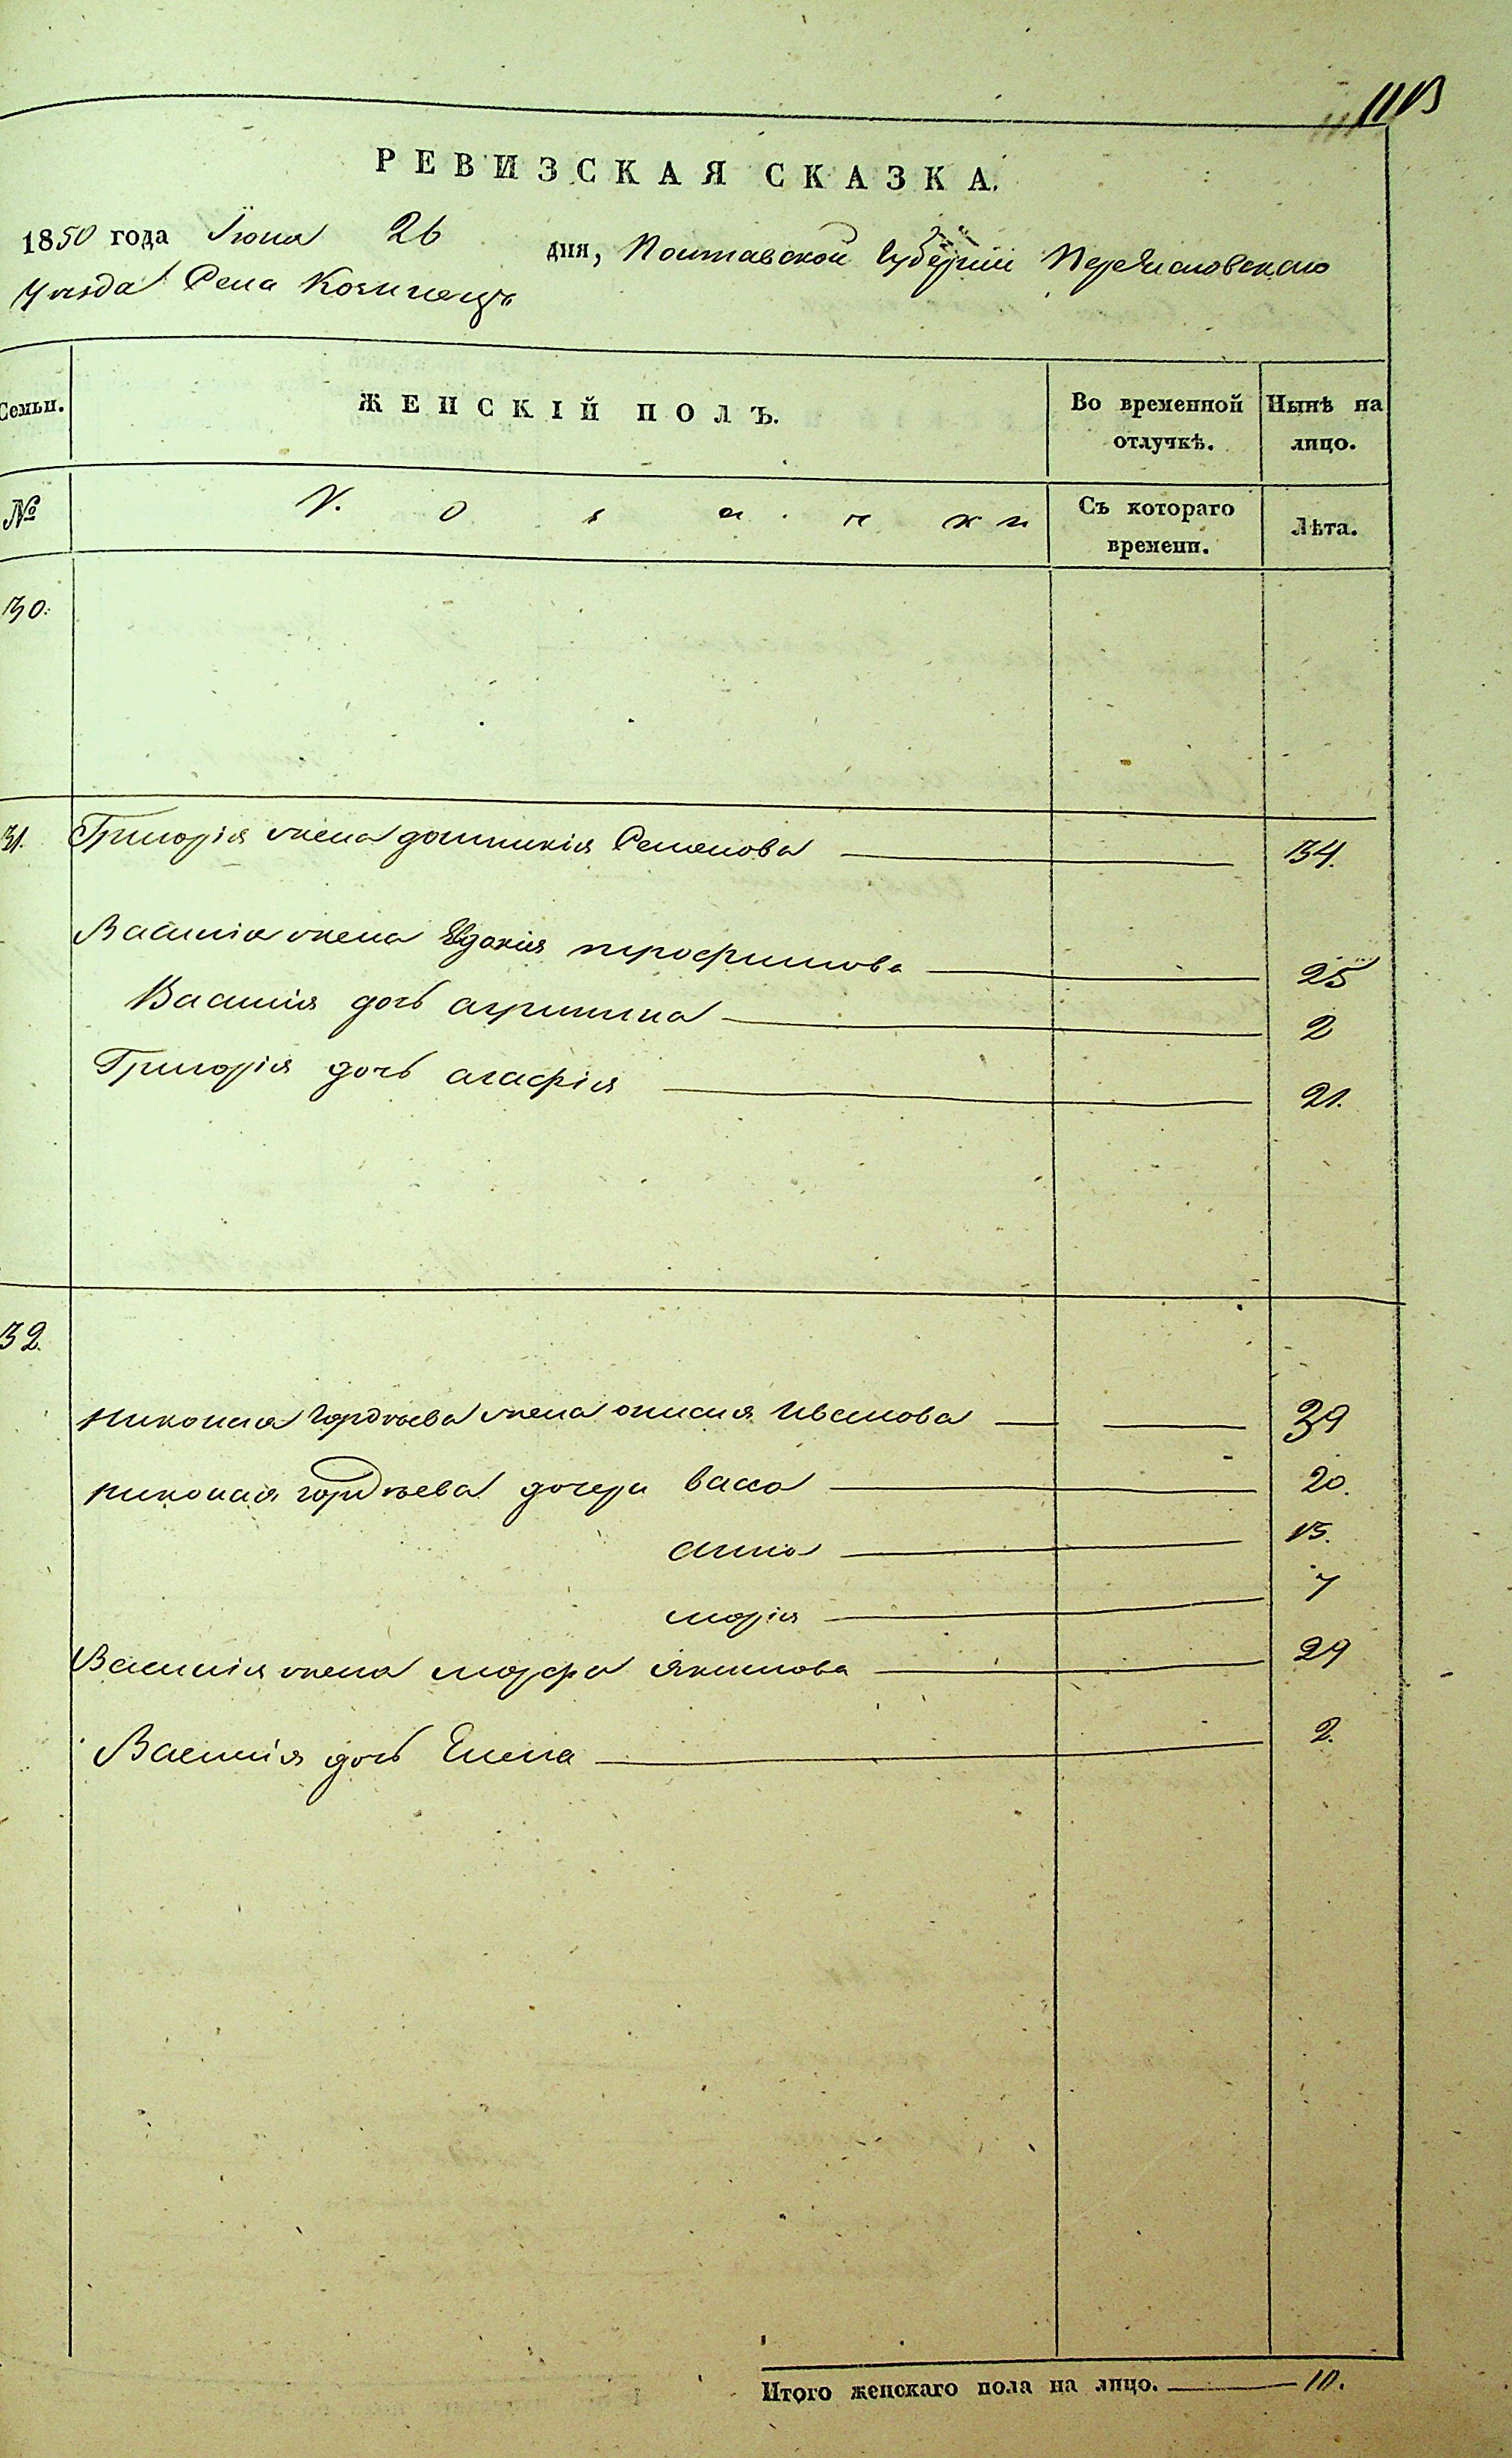 РЕВИЗСКАЯ СКАЗКА.
1850 года Іюня 26 дня, Полтавской Губерніи Переяславскаго
Уѣзда Села Козинецъ
Семьи. ЖЕНСКІЙ ПОЛЪ. Во временной отлучкѣ. Нынѣ на лицо.
№ К о з а ч к и Съ котораго времени. Лѣта.
30.
31. Григорія жена домникія Семенова 34.
Василія жена Евдокія трофимова 25
Василія дочь агрипина 2
Григорія дочь агафія 21.
32.
николая гордѣева жена анисія Иванова 39
николая гордѣева дочери васса 20.
анна 15.
марія 7
Василія жена марфа Якимова 29
Василія дочь Елена 2.
Итого женскаго пола на лицо. 10.